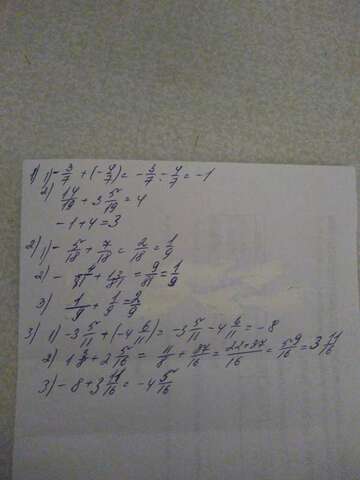 1) 1) - 3/7 + (- 4/7) = - 3/7 - 4/7 = -1
2) 14/19 + 3 5/19 = 4
-1+4=3
2) 1) - 5/18 + 7/18 = 2/18 = 1/9
2) - 4/81 + 13/81 = 9/81 = 1/9
3) 1/9 + 1/9 = 2/9
3) 1) -3 5/11 + (-4 6/11) = -3 5/11 - 4 6/11 = -8
2) 1 3/8 + 2 5/16 = 11/8 + 37/16 = 22+37/16 = 59/16 = 3 11/16
3) - 8 + 3 11/16 = -4 5/16